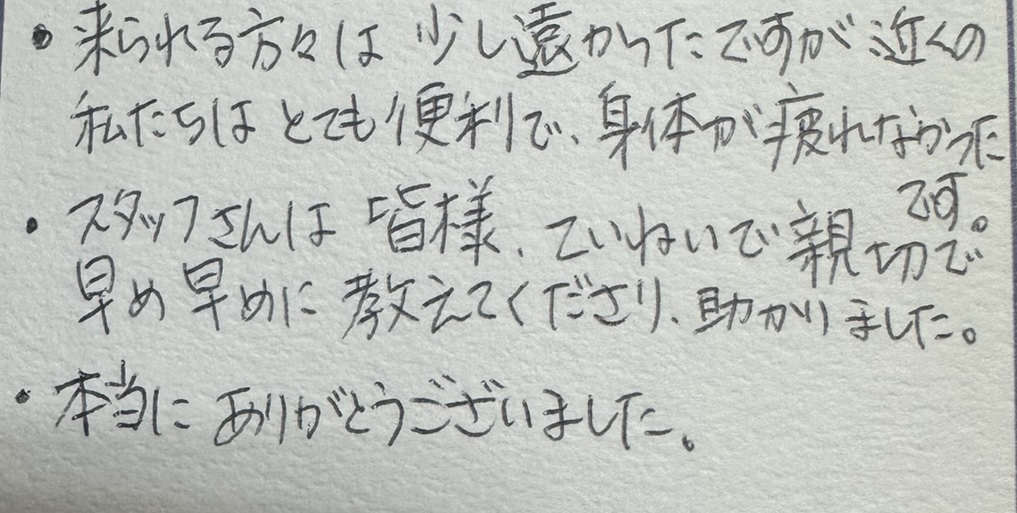 ・来られる方々は少し遠かったですが近くの
私たちはとても便利で、身体が疲れなかった
です。
・スタッフさんは皆様、ていねいで親切で
早め早めに教えてくださり、助かりました。
・本当にありがとうございました。